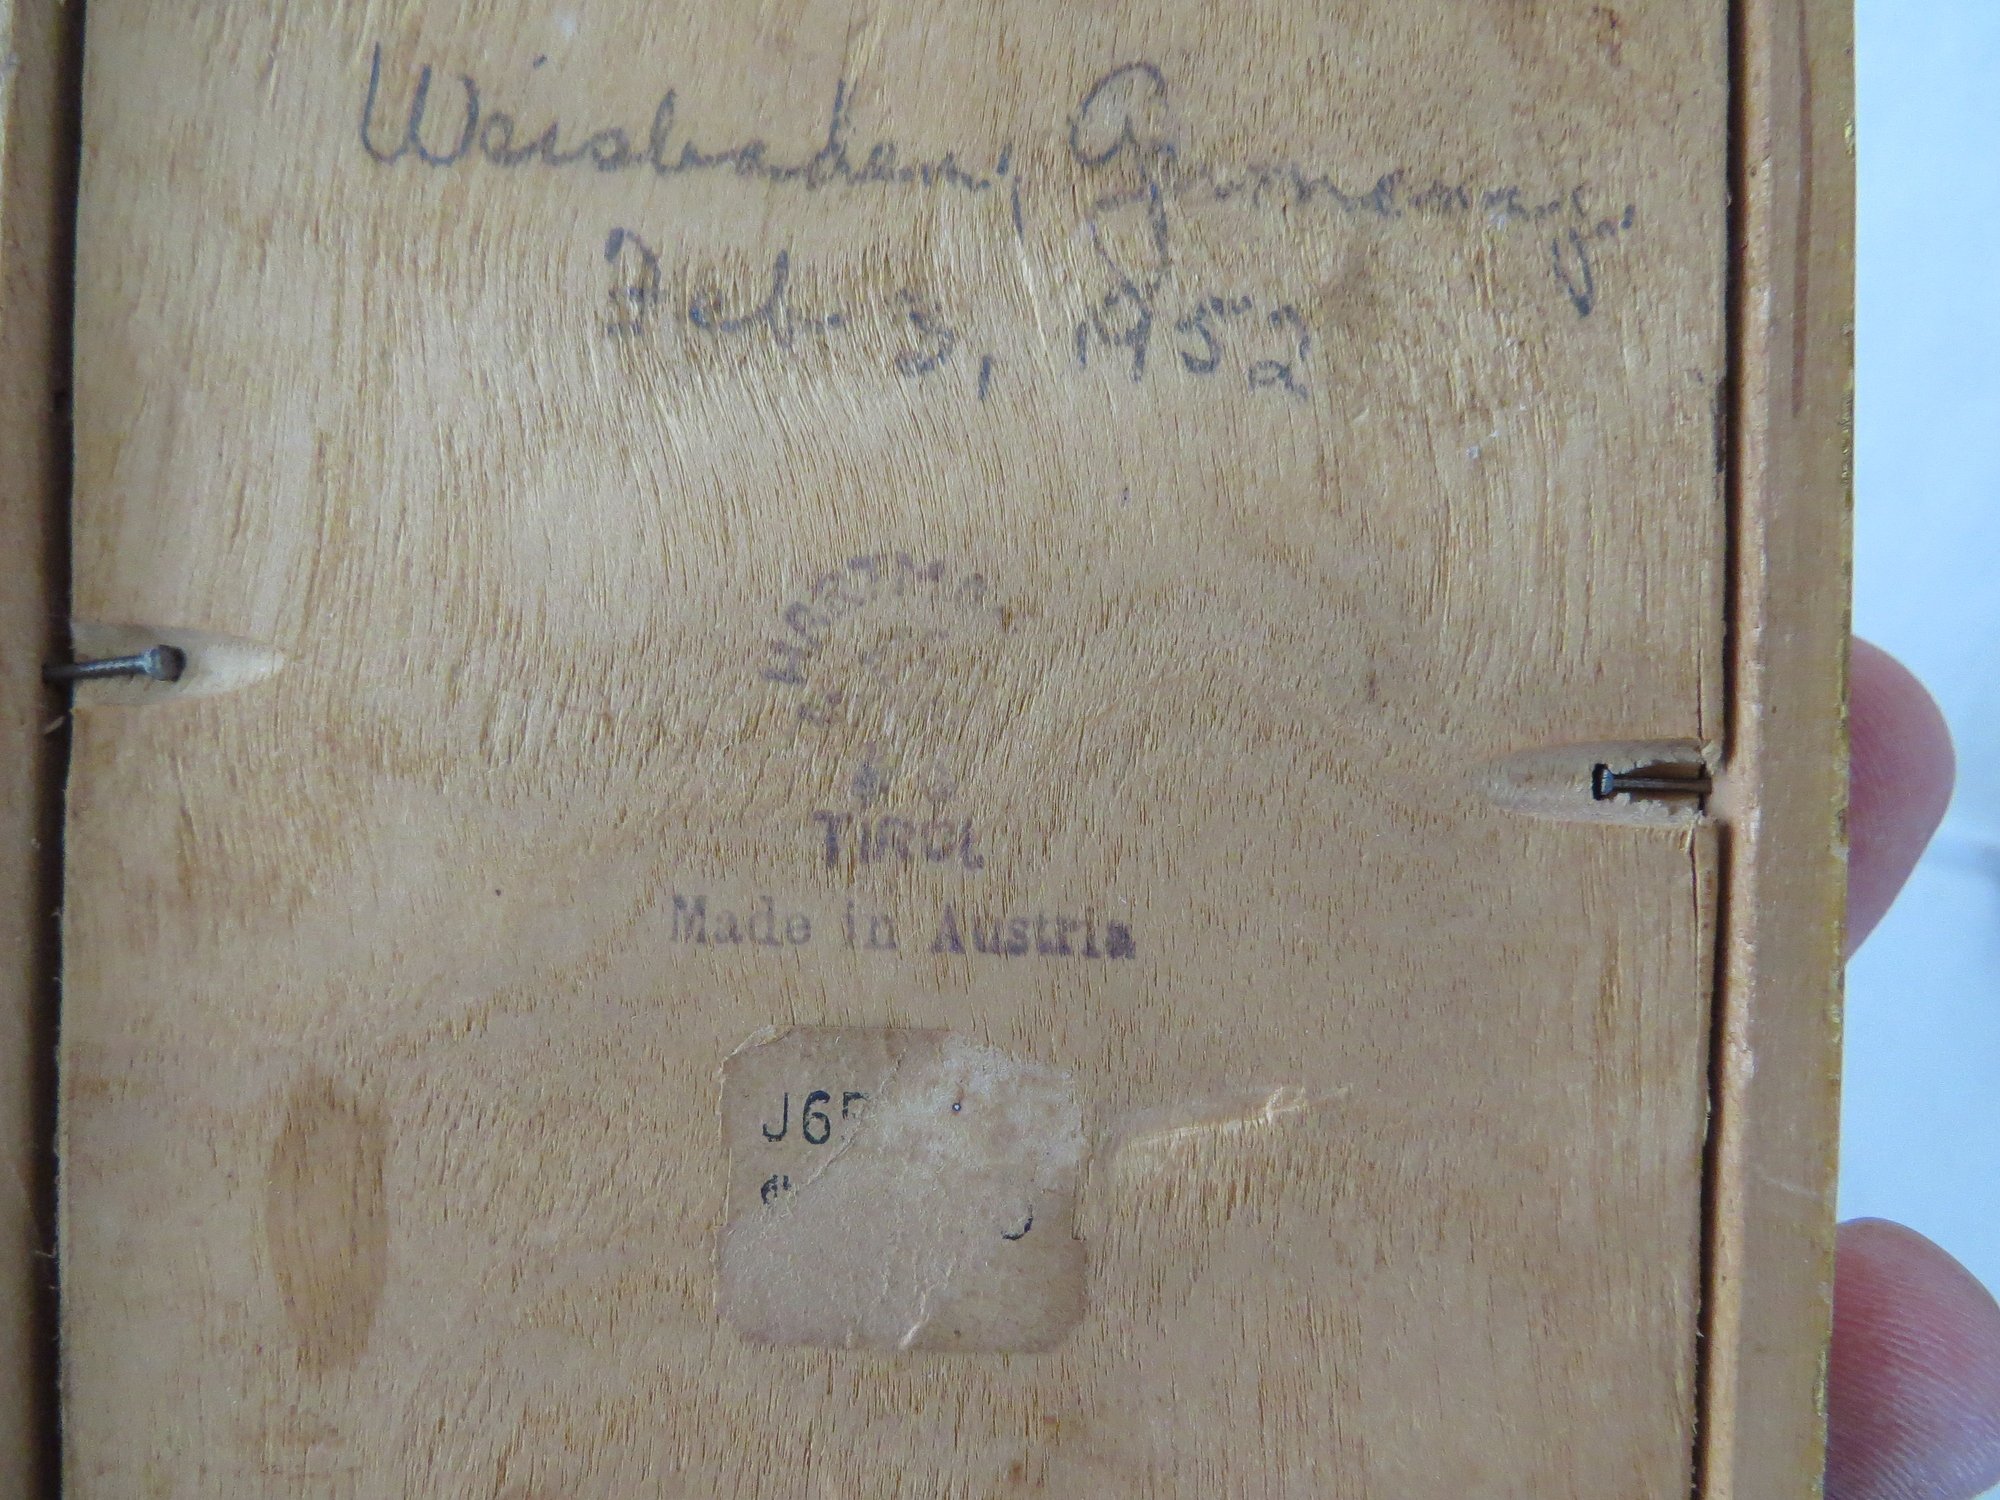 Weisbaden, Germany.
Feb. 3, 1952
TIROL
Made in Austria
J6